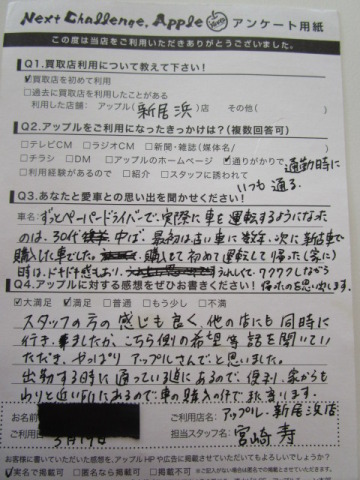 Next Challenge. Apple アンケート用紙
この度は当店をご利用いただきありがとうございました。
Q1.買取店利用について教えて下さい!
☑買取店を初めて利用
□過去に買取店を利用したことがある
利用した店舗: アップル(新居浜)店 その他( )
Q2.アップルをご利用になったきっかけは?(複数回答可)
□テレビCM □ラジオCM □新聞・雑誌(媒体名/ )
□チラシ □DM □アップルのホームページ ☑通りがかりで 通勤時に
□利用経験があるので □紹介 □スタッフに誘われて いつも通る。
Q3.あなたと愛車との思い出をお聞かせください!
車名: ずっとペーパードライバーで、実際に車を運転するようになった
のは、30代 中ば、最初は古い車に数年、次に新店車で
購入した車でした。 購入して初めて運転して帰った(家に)
時は、ドキドキ感もあり、 うれしくて、ワクワクしながら
帰ったのを思い出します。
Q4.アップルに対する感想をぜひお書きください!
☑大満足 ☑満足 □普通 □もう少し □不満
スタッフの方の感じも良く、他の店にも同時に
行きましたが、こちら側の希望等話を聞いてい
ただき、やっぱりアップルさんでと思いました。
出勤する時に通っている道にあるので、便利、家からも
わりと近い所にあるので車の購入の件で
お名前
ご利用店名: アップル・新居浜店
ご利用日 3月19日
担当スタッフ名: 宮崎 寿
お客様に書いていただいた感想を、アップルHPや広告に掲載させていただいてもよろしいでしょうか?
☑実名で掲載可 □匿名なら掲載可 □掲載不可